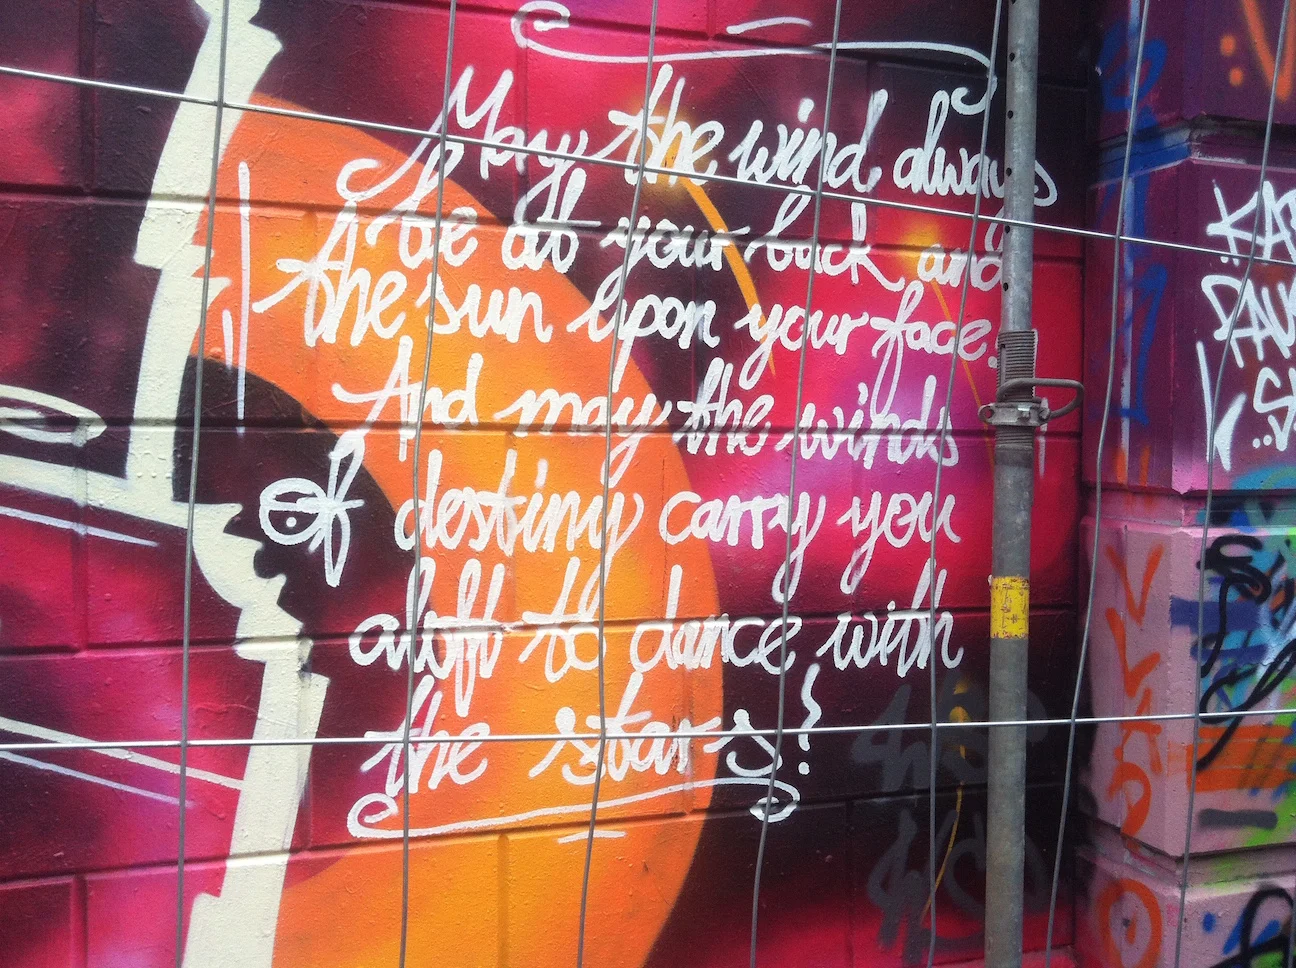 May the wind always
be at your back and
the sun upon your face.
And may the winds
of destiny carry you
aloft to dance with
the stars!